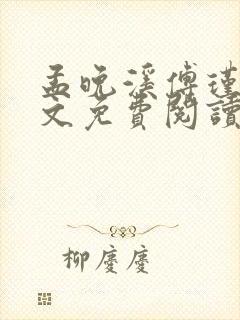 孟晚溪傅瑾
文免費閱讀
柳慶慶